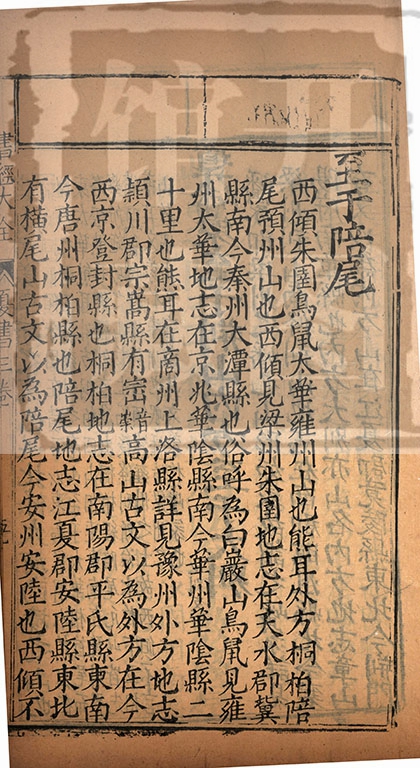 至于陪尾
西傾朱圉鳥鼠太華雍州山也熊耳外方桐柏陪
尾預州山也西傾見梁州朱圉地志在天水郡冀
縣南今秦州大潭縣也俗呼為白巖山鳥鼠見雍
州太華地志在京兆華陰縣南今華州華陰縣二
十里也熊耳在商州上洛縣詳見豫州外方地志
潁川郡宗嵩縣有崈音高山古文以為外方在今
西京登封縣也桐柏地志在南陽郡平氏縣東南
今唐州桐柏縣也陪尾地志江夏郡安陸縣東北
有橫尾山古文以為陪尾今安州安陸也西傾不
書經大全 夏書三卷